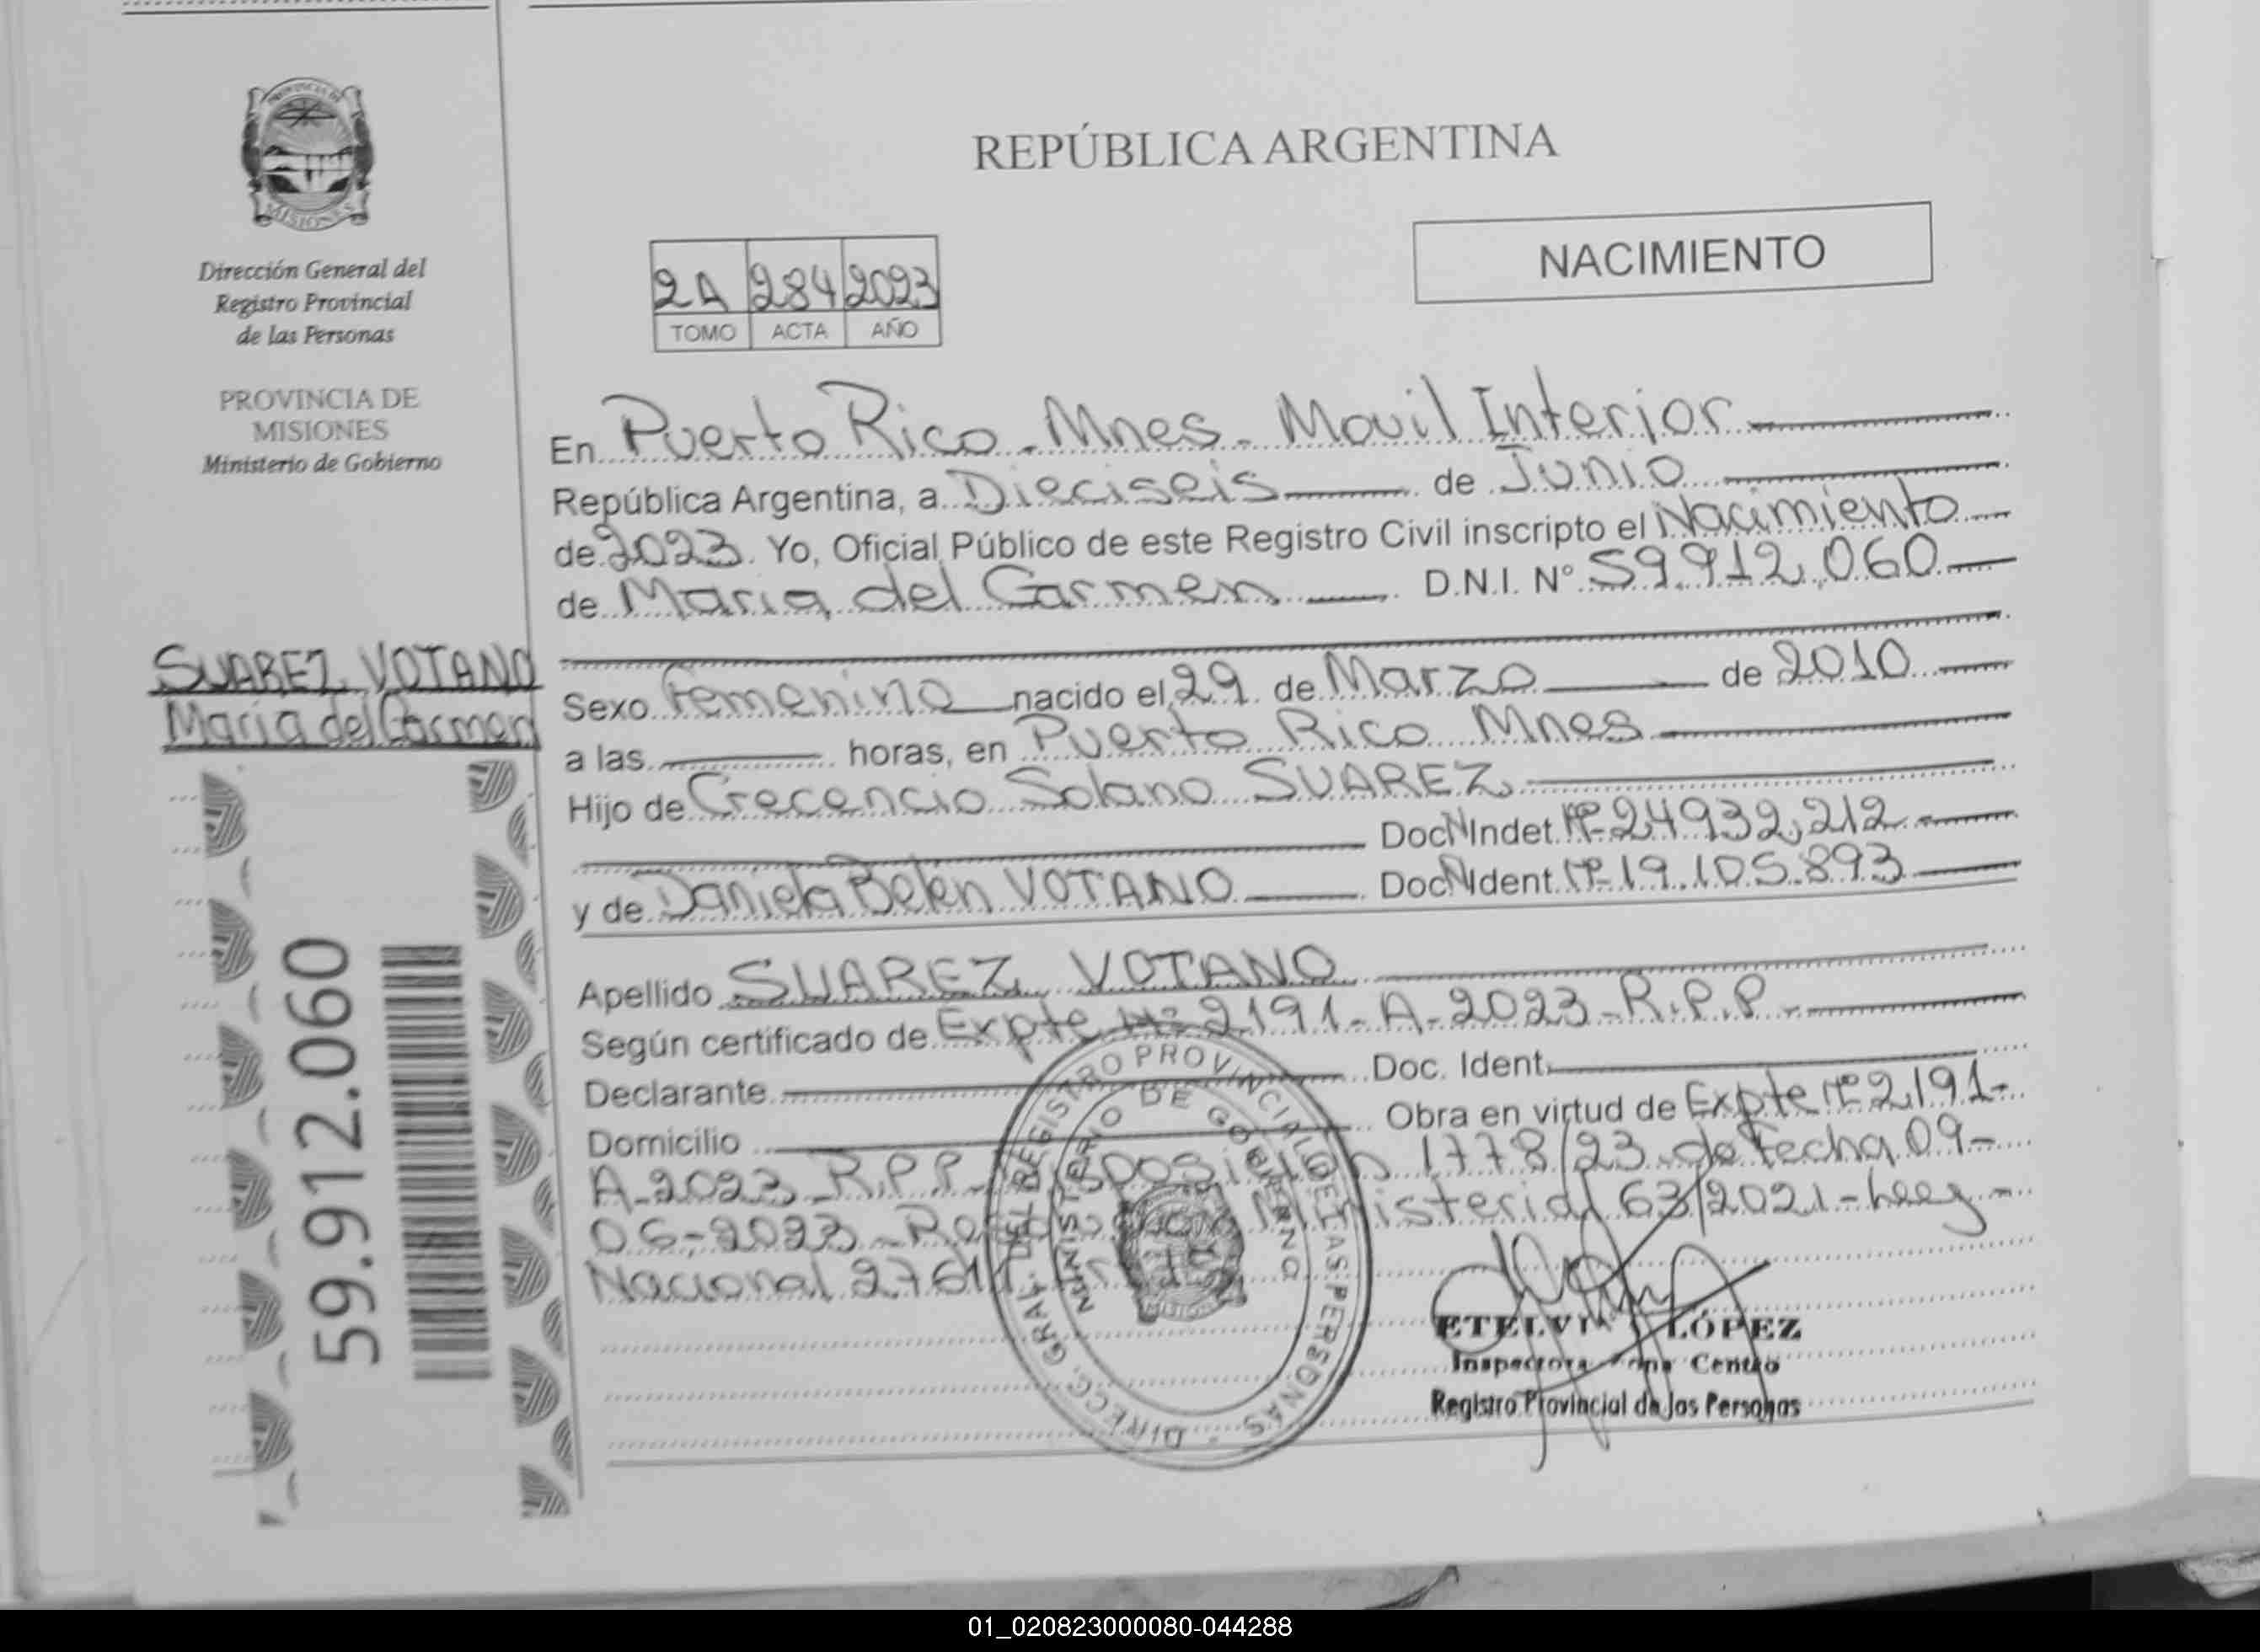 PROVINCIA DE
MISIONES
Dirección General del
Registro Provincial
de las Personas
PROVINCIA DE
MISIONES
Ministerio de Gobierno
SUAREZ VOTANO
Maria del Carmen
59.912.060
REPÚBLICA ARGENTINA
NACIMIENTO
2A 284 2023
TOMO ACTA AÑO
En Puerto Rico - Mnes - Movil Interior
República Argentina, a Dieciseis de Junio
de 2023. Yo, Oficial Público de este Registro Civil inscripto el Nacimiento
de Maria del Carmen D.N.I. Nº 59.912.060
Sexo Femenino nacido el 29 de Marzo de 2010
a las horas, en Puerto Rico Mnes
Hijo de Crecencio Solano SUAREZ
Doc N Indet Nº 24932.212
y de Daniela Belen VOTANO Doc N Ident Nº 19.105.893
Apellido SUAREZ VOTANO
Según certificado de Expte Nº 2191-A-2023-R.P.P.
Declarante Doc. Ident.
Domicilio Obra en virtud de Expte Nº 2191-
A-2023-R.P.P- Disposición 1778/23 de Fecha 09-
06-2023 - Ministerial 63/2021 - Leey -
Nacional 27611
DIRECC. GRAL. DEL REGISTRO PROVINCIAL DE LAS PERSONAS
MINISTERIO DE GOBIERNO
LÓPEZ
Inspectora Zona Centro
Registro Provincial de las Personas
01_020823000080-044288